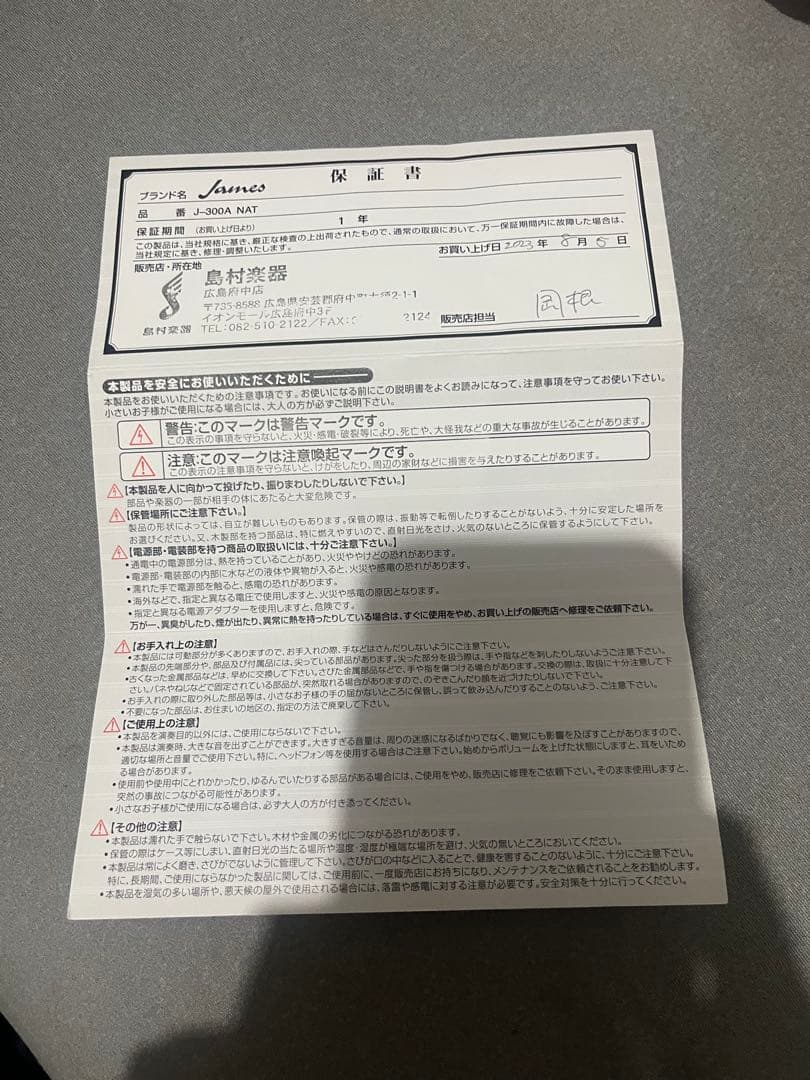 保証書
ブランド名 James
品番 J-300A NAT
保証期間 (お買い上げ日より) 1年
この製品は、当社規格に基き、厳正な検査の上出荷されたもので、通常の取扱において、万一保証期間内に故障した場合は、
当社規定に基き、修理・調整いたします。
お買い上げ日 2023年8月5日
販売店・所在地
島村楽器
広島府中店
〒735-8588 広島県安芸郡府中町大須2-1-1
イオンモール広島府中3F
島村楽器 TEL:082-510-2122/FAX: 2124
販売店担当 岡根
本製品を安全にお使いいただくために
本製品をお使いいただくための注意事項です。お使いになる前にこの説明書をよくお読みになって、注意事項を守ってお使い下さい。
小さいお子様がご使用になる場合には、大人の方が必ずご説明下さい。
警告:このマークは警告マークです。
この表示の事項を守らないと、火災・感電・破裂等により、死亡や、大怪我などの重大な事故が生じることがあります。
注意:このマークは注意喚起マークです。
この表示の注意事項を守らないと、けがをしたり、周辺の家財などに損害を与えたりすることがあります。
【本製品を人に向かって投げたり、振りまわしたりしないで下さい。】
部品や楽器の一部が相手の体にあたると大変危険です。
【保管場所にご注意下さい。】
製品の形状によっては、自立が難しいものもあります。保管の際は、振動等で転倒したりすることがないよう、十分に安定した場所を
お選びください。又、木製部を持つ部品は、特に燃えやすいので、直射日光をさけ、火気のないところに保管するようにして下さい。
【電源部・電装部を持つ商品の取扱いには、十分ご注意下さい。】
・通電中の電源部分は、熱を持っていることがあり、火災ややけどの恐れがあります。
・電源部・電装部の内部に水などの液体や異物が入ると、火災や感電の恐れがあります。
・濡れた手で電源部を触ると、感電の恐れがあります。
・海外などで、指定と異なる電圧で使用しますと、火災や感電の原因となります。
・指定と異なる電源アダプターを使用しますと、危険です。
万が一、異臭がしたり、煙が出たり、異常に熱を持ったりしている場合は、すぐに使用をやめ、お買い上げの販売店へ修理をご依頼下さい。
【お手入れ上の注意】
・本製品には可動部分が多くありますので、お手入れの際、手などはさんだりしないようにご注意下さい。
・本製品の先端部分や、部品及び付属品には、尖っている部品があります。尖った部分を扱う際は、手や指などを刺したりしないようご注意下さい。
・古くなった金属部品などは、早めに交換して下さい。さびた金属部品などで、手や指を傷つける場合があります。交換の際は、取扱に十分注意して下
さい。バネやねじなどで固定されている部品が、突然取れる場合がありますので、のぞきこんだり顔を近づけたりしないで下さい。
・お手入れの際に取り外した部品等は、小さなお子様の手の届かないところに保管し、誤って飲み込んだりすることのないよう、ご注意下さい。
・不要になった部品は、お住まいの地区の、指定の方法で廃棄して下さい。
【ご使用上の注意】
・本製品を演奏目的以外には、ご使用にならないで下さい。
・本製品は演奏時、大きな音を出すことができます。大きすぎる音量は、周りの迷惑になるばかりでなく、聴覚にも影響を及ぼすことがありますので、
適切な場所と音量でご使用下さい。特に、ヘッドフォン等を使用する場合はご注意下さい。始めからボリュームを上げた状態にしますと、耳をいため
る場合があります。
・使用前や使用中にとれかかったり、ゆるんでいたりする部品がある場合には、ご使用をやめ、販売店に修理をご依頼下さい。そのまま使用しますと、
突然の事故につながる可能性があります。
・小さなお子様がご使用になる場合は、必ず大人の方が付き添ってください。
【その他の注意】
・本製品は濡れた手で触らないで下さい。木材や金属の劣化につながる恐れがあります。
・保管の際はケース等にしまい、直射日光の当たる場所や温度・湿度が極端な場所を避け、火気の無いところにおいてください。
・本製品は常によく磨き、さびがでないように管理して下さい。さびが口の中などに入ることで、健康を害することのないように、十分にご注意下さい。
特に、長期間、ご使用にならなかった製品に関しては、ご使用前に、一度販売店にお持ちになり、メンテナンスをご依頼されることをお勧めします。
・本製品を湿気の多い場所や、悪天候の屋外で使用される場合には、落雷や感電に対する注意が必要です。安全対策を十分に行ってください。